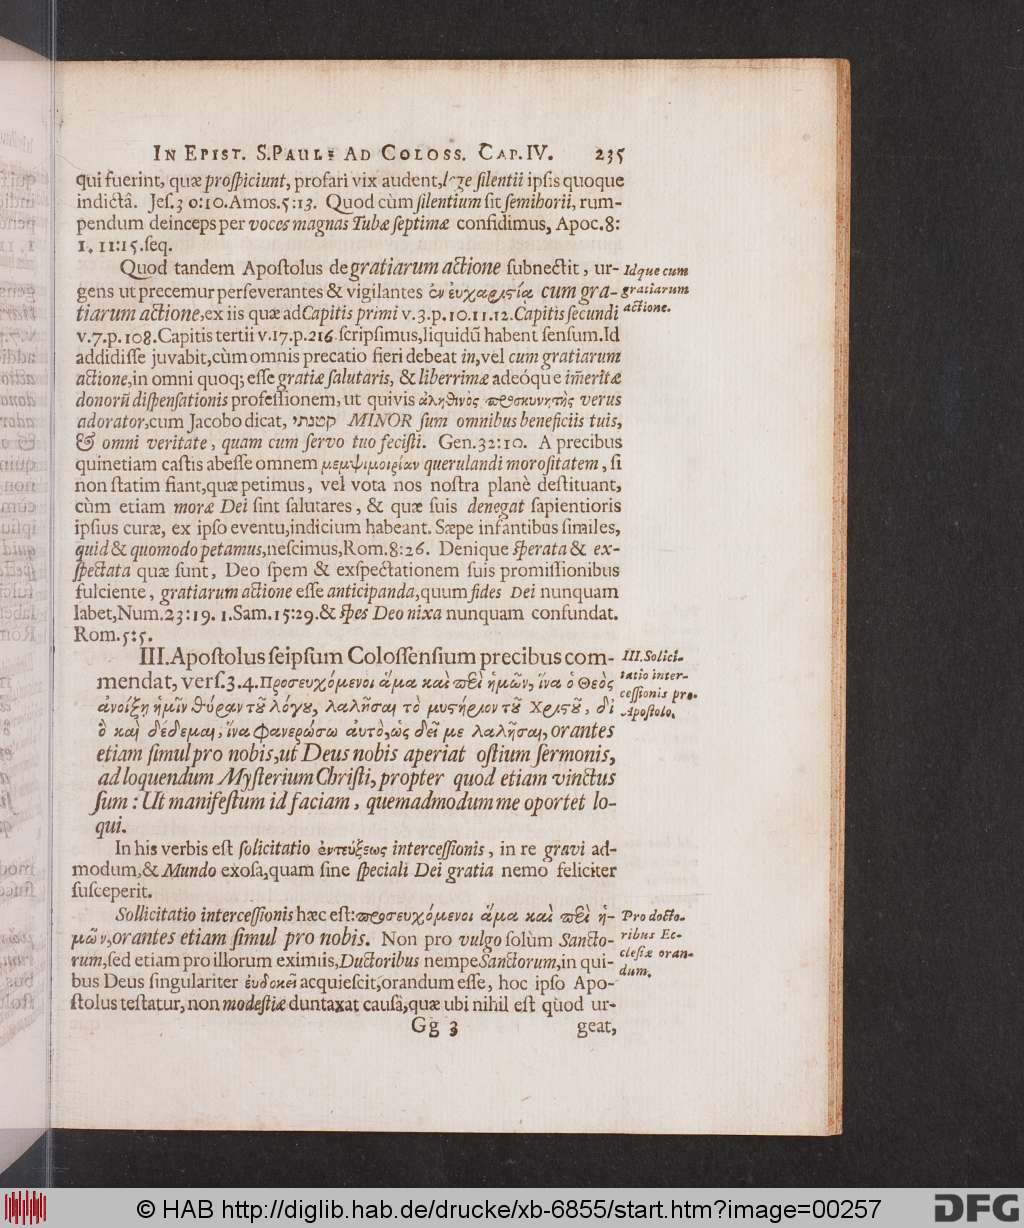 IN EPIST. S. PAULI AD COLOSS. CAP. IV. 235
qui fuerint, quæ proſpiciunt, profari vix audent, lege ſilentii ipſis quoque
indictâ. Jeſ. 3 0:10. Amos. 5:13. Quod cùm ſilentium ſit ſemihorii, rum-
pendum deinceps per voces magnas Tubæ ſeptimæ confidimus, Apoc. 8:
1. 11:15. ſeq.
Quod tandem Apoſtolus de gratiarum actione ſubnectit, ur-
gens ut precemur perſeverantes & vigilantes ἐν ἐυχαριστία cum gra-
tiarum actione, ex iis quæ ad Capitis primi v. 3. p. 10. 11. 12. Capitis ſecundi
v. 7. p. 108. Capitis tertii v. 17. p. 216. ſcripſimus, liquidũ habent ſenſum. Id
addidiſſe juvabit, cùm omnis precatio fieri debeat in, vel cum gratiarum
actione, in omni quoq; eſſe gratiæ ſalutaris, & liberrimæ adeóque im̃eritæ
donorũ diſpenſationis profeſſionem, ut quivis ἀληθινὸς προσκυνητὴς verus
adorator, cum Jacobo dicat, קטנתי MINOR ſum omnibus beneficiis tuis,
& omni veritate, quam cum ſervo tuo feciſti. Gen. 32:10. A precibus
quinetiam caſtis abeſſe omnem μεμψιμοιρίαν querulandi moroſitatem, ſi
non ſtatim fiant, quæ petimus, vel vota nos noſtra planè deſtituant,
cùm etiam moræ Dei ſint ſalutares, & quæ ſuis denegat ſapientioris
ipſius curæ, ex ipſo eventu, indicium habeant. Sæpe infantibus ſimiles,
quid & quomodo petamus, neſcimus, Rom. 8:26. Denique ſperata & ex-
ſpectata quæ ſunt, Deo ſpem & exſpectationem ſuis promiſſionibus
fulciente, gratiarum actione eſſe anticipanda, quum fides Dei nunquam
labet, Num. 23:19. 1. Sam. 15:29. & ſpes Deo nixa nunquam confundat.
Rom. 5:5.
III. Apoſtolus ſeipſum Coloſſenſium precibus com-
mendat, verſ. 3. 4. Προσευχόμενοι ἅμα καὶ περὶ ἡμῶν, ἵνα ὁ Θεὸς
ἀνοίξῃ ἡμῖν θύραν τοῦ λόγου, λαλῆσαι τὸ μυστήριον τοῦ Χριστοῦ, δι
ὃ καὶ δέδεμαι, ἵνα φανερώσω αὐτὸ, ὡς δεῖ με λαλῆσαι, orantes
etiam ſimul pro nobis, ut Deus nobis aperiat oſtium ſermonis,
ad loquendum Myſterium Chriſti, propter quod etiam vinctus
ſum: Ut manifeſtum id faciam, quemadmodum me oportet lo-
qui.
In his verbis eſt ſolicitatio ἐντεύξεως interceſſionis, in re gravi ad-
modum, & Mundo exoſa, quam ſine ſpeciali Dei gratia nemo feliciter
ſuſceperit.
Sollicitatio interceſſionis hæc eſt: προσευχόμενοι ἅμα καὶ περὶ ἡ-
μῶν, orantes etiam ſimul pro nobis. Non pro vulgo ſolùm Sancto-
rum, ſed etiam pro illorum eximiis, Ductoribus nempe Sanctorum, in qui-
bus Deus ſingulariter ἐυδοκεῖ acquieſcit, orandum eſſe, hoc ipſo Apo-
ſtolus teſtatur, non modeſtiæ duntaxat cauſâ, quæ ubi nihil eſt quod ur-
Gg 3 geat,
Idque cum
gratiarum
actione.
III. Solici-
tatio inter-
ceſſionis pro
Apoſtolo.
Pro docto-
ribus Ec-
cleſiæ oran-
dum.
© HAB http://diglib.hab.de/drucke/xb-6855/start.htm?image=00257
DFG